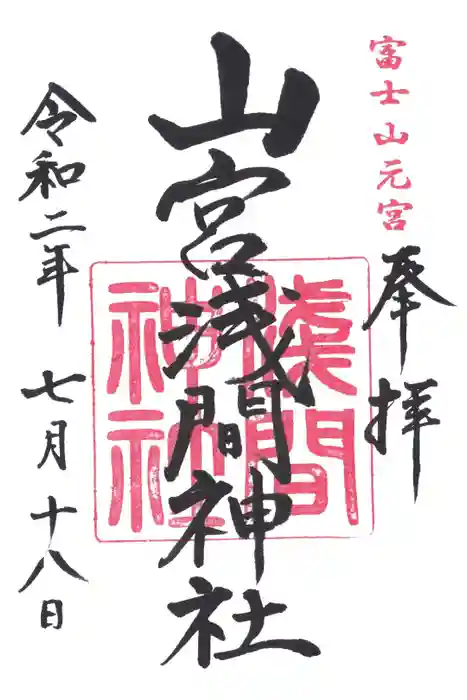 富士山元宮
奉拝
山宮浅間神社
浅間神社
令和二年 七月十八日